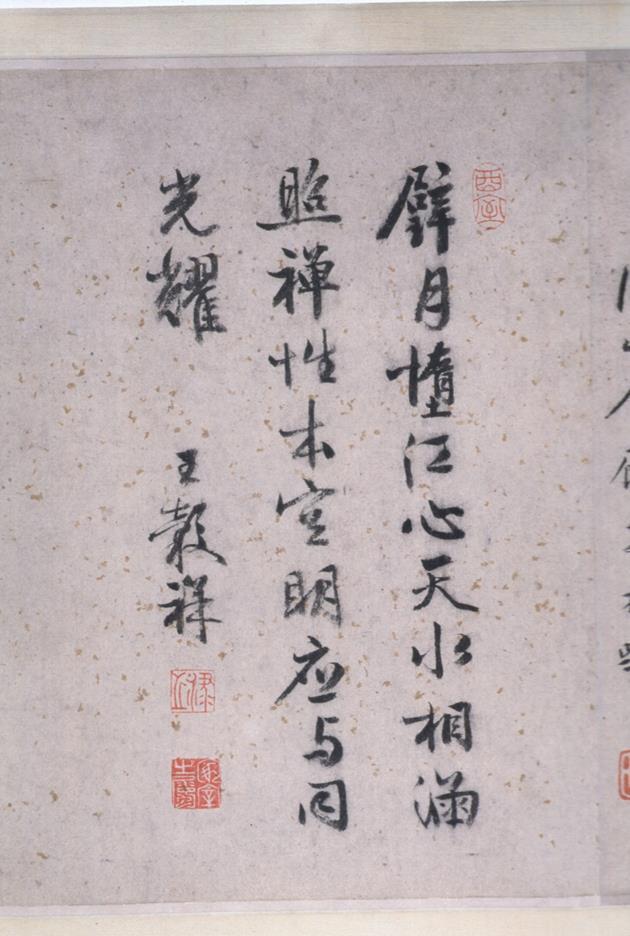 酉室
璧月墮江心天水相涵
照禅性本空明应与同
光耀
王穀祥